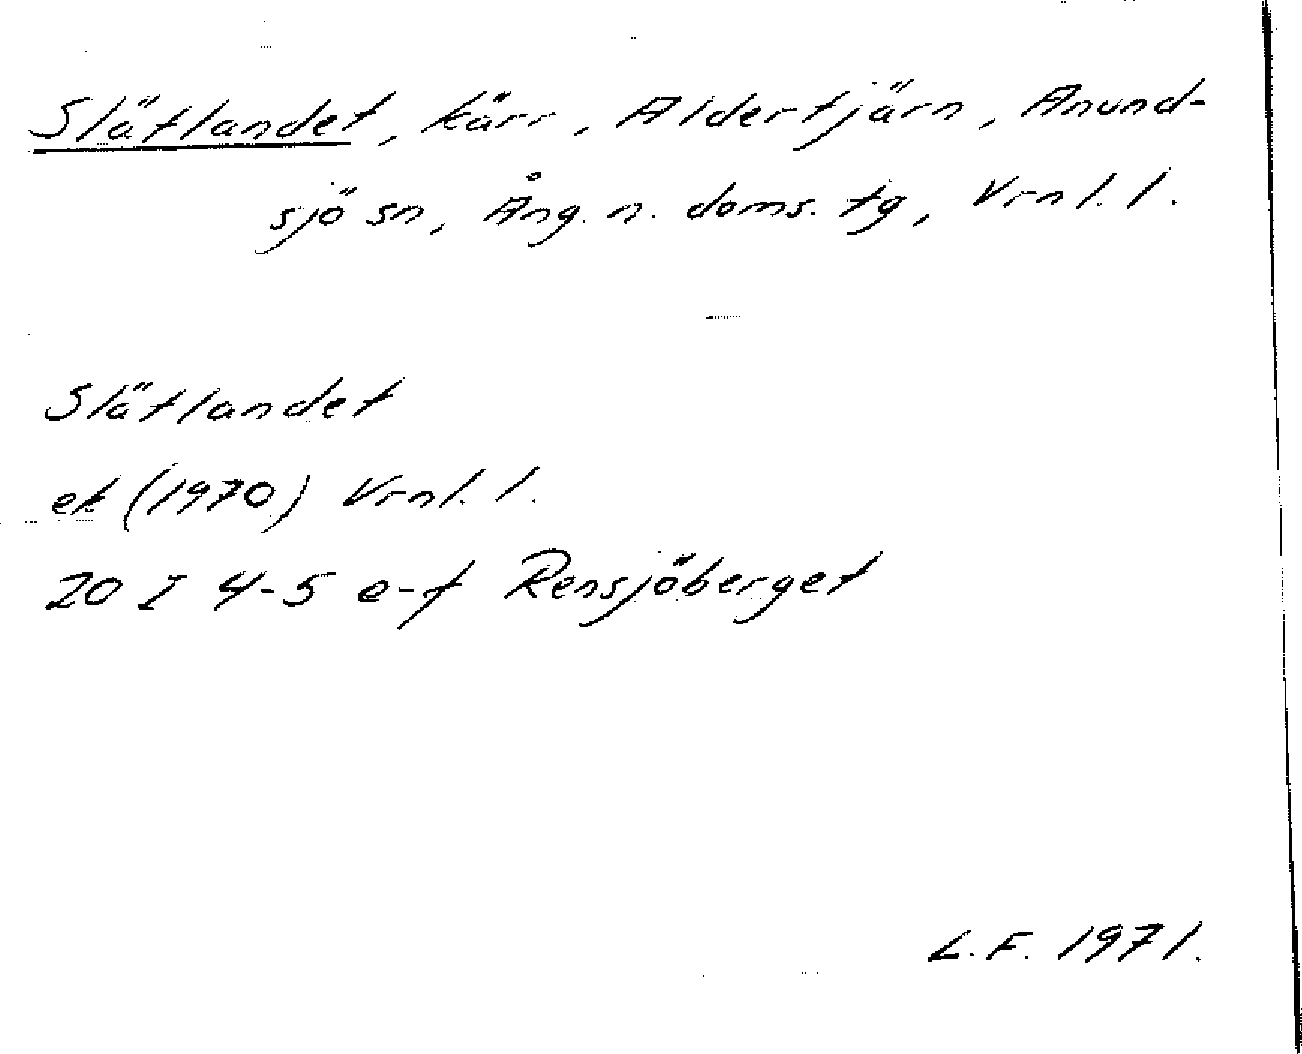 Slätlandet, kärr, Aldertjärn, Anund-
sjö sn, Ång. n. doms. tg, Vrnl. l.
Slätlandet
ek (1970) Vrnl. l.
20 I 4-5 e-f Rensjöberget
L.F. 1971.